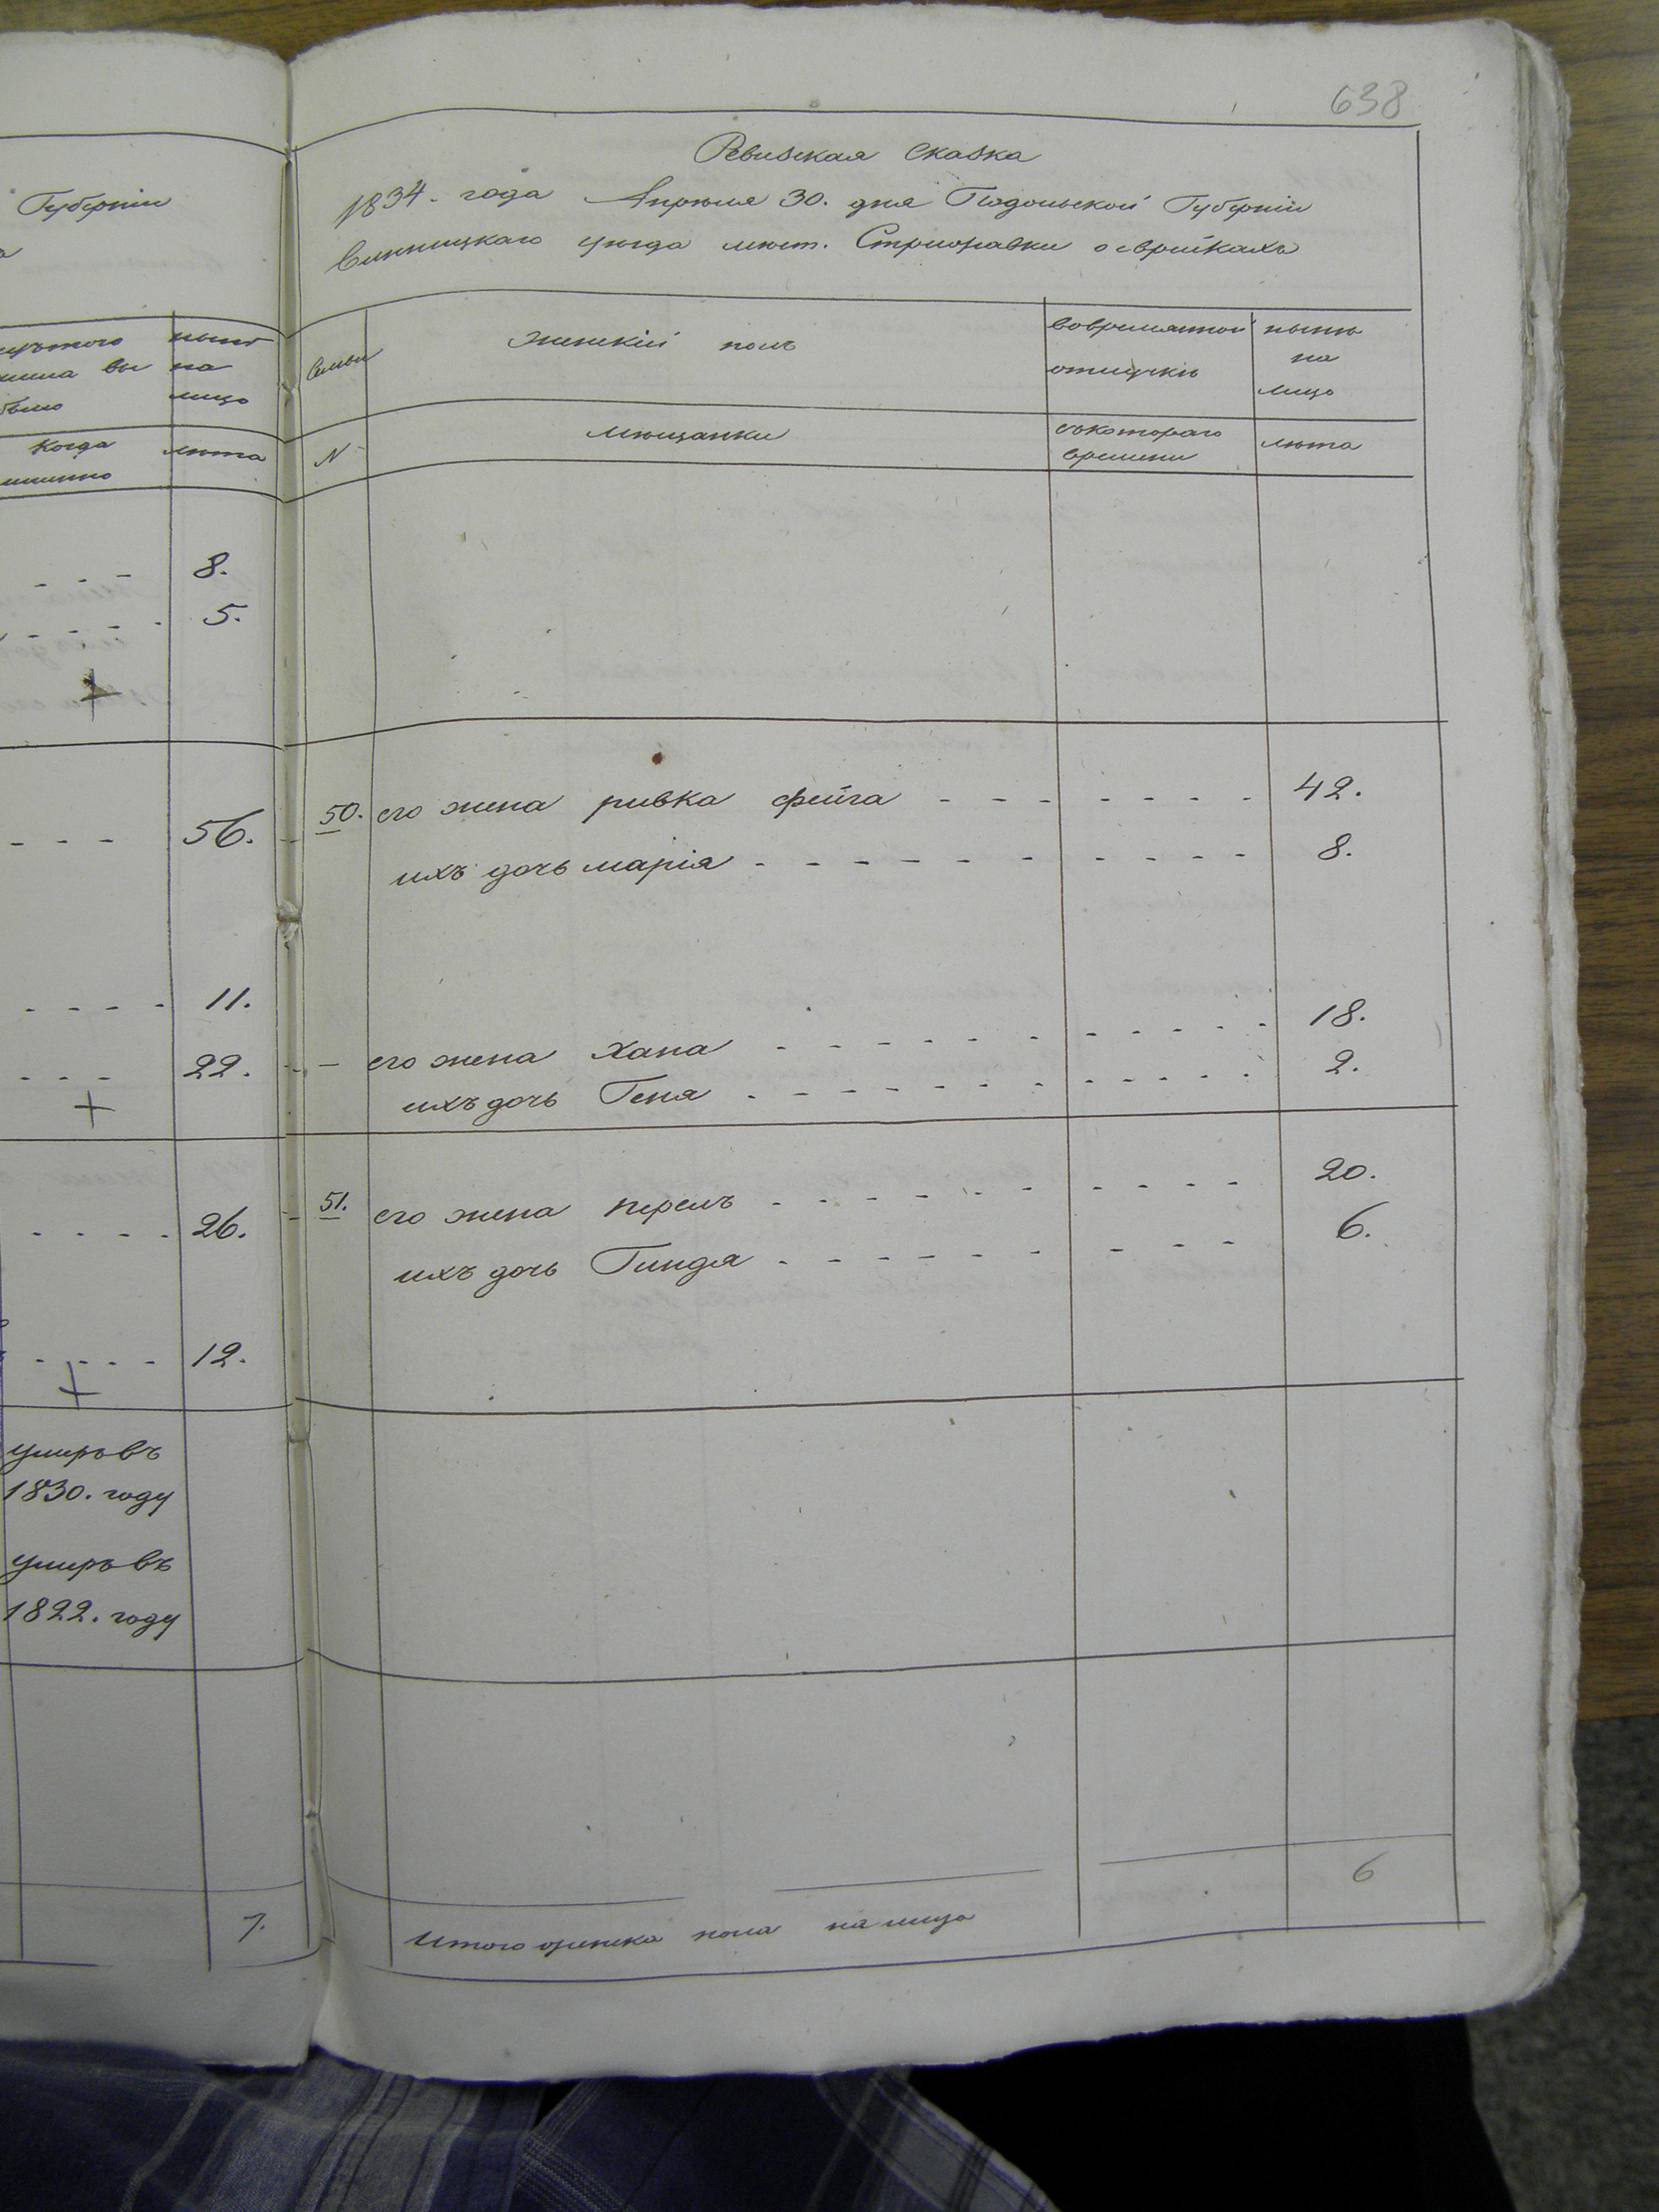 638
Губерніи
Ревизская Сказка
1834. года Апрѣля 30. дня Подольской Губерніи
Винницкаго уѣзда мѣст. Стрижавки о еврейкахъ
нынѣ
на
лицо
Когда
имянно
лѣта
Семьи
Женскій полъ
вовременной
отлучкѣ
нынѣ
на
лицо
N
мѣщанки
съкотораго
времени
лѣта
8.
5.
56.
50. его жена ривка фейга 42.
ихъ дочь марія 8.
11.
22.
его жена Хана 18.
ихъ дочь Геня 2.
26.
51. его жена перель 20.
ихъ дочь Гиндя 6.
12.
умръ въ
1830. году
умръ въ
1822. году
7.
6
Итого женска пола на лицо